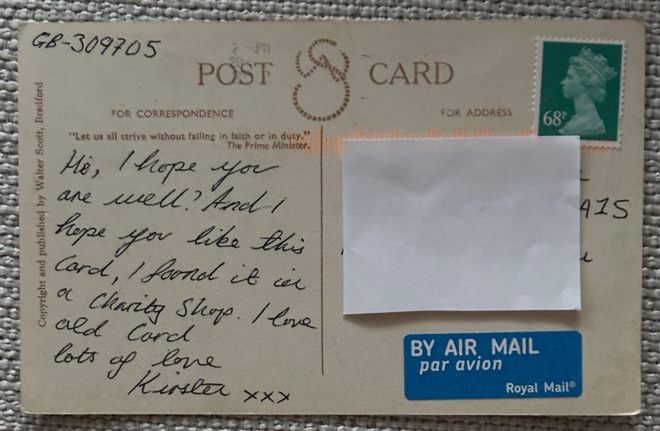 GB-309705
POST CARD
FOR CORRESPONDENCE
FOR ADDRESS
"Let us all strive without failing in faith or in duty."
The Prime Minister.
Copyright and published by Walter Scott, Bradford
Hi, I hope you
are well? And I
hope you like this
Card, I found it in
a Charity Shop. I love
old Card
lots of love
Kirsten xxx
68P
A15
BY AIR MAIL
par avion
Royal Mail®